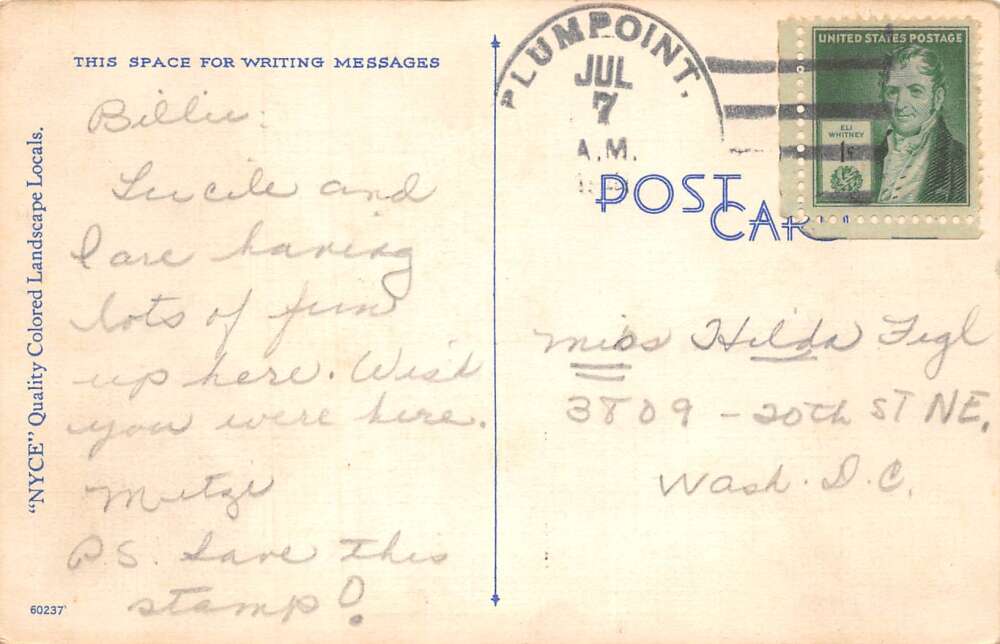 THIS SPACE FOR WRITING MESSAGES
Billie:
Lucile and
I are having
lots of fun
up here. Wish
you were here.
Mitzi
P.S. Save this
stamp!
"NYCE" Quality Colored Landscape Locals.
60237
PLUMPOINT,
JUL
7
A.M.
UNITED STATES POSTAGE
ELI
WHITNEY
1¢
POST
CARD
Miss Hilda Fegl
3809 - 20th ST NE.
Wash. D.C.